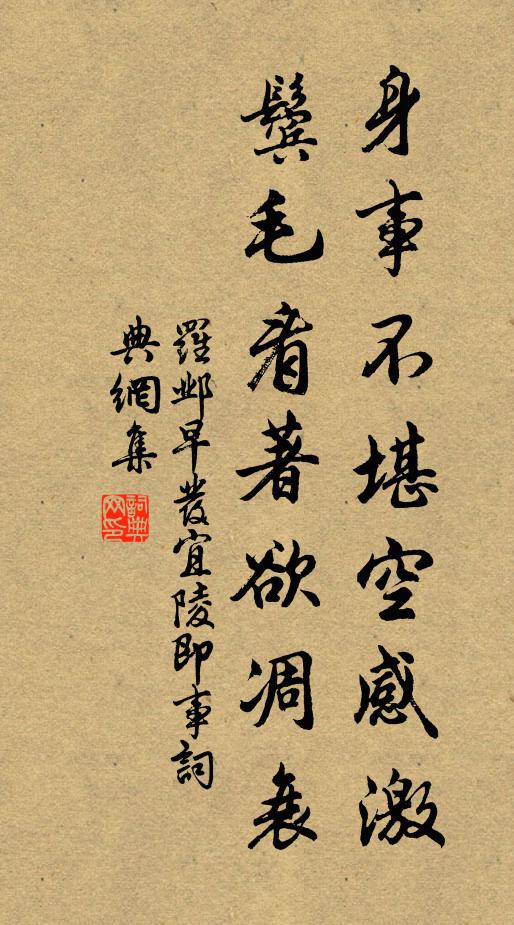 身事不堪空感激
鬢毛看著欲凋衰
羅鄴早發宜陵即事詞
典網集
詞典
网印